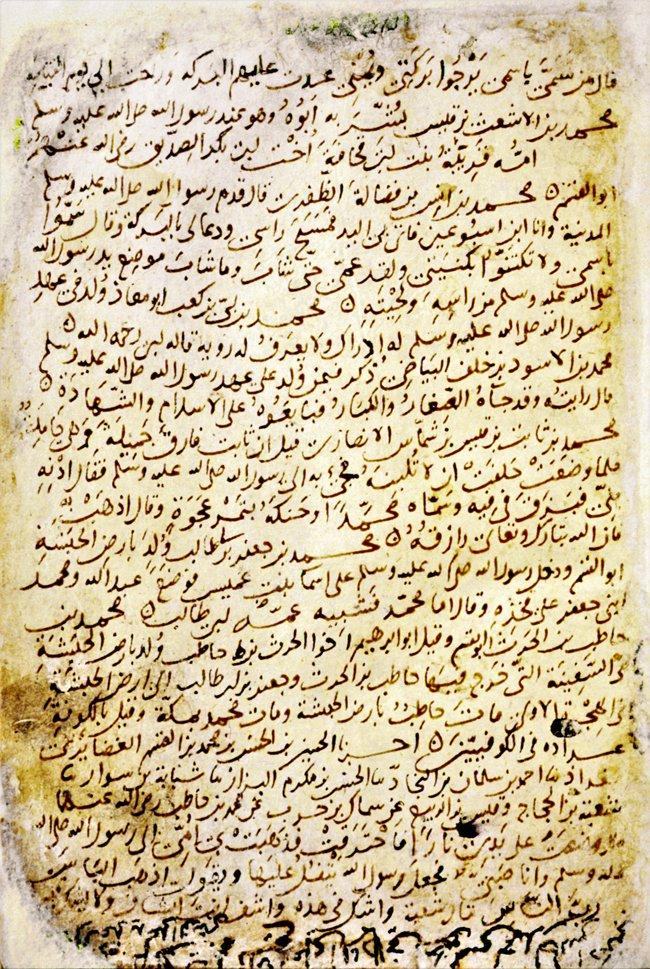 قال من تسمى باسمي يرجوا بركتي ويمني غدت عليهم البركة وراحت الى يوم القيمة
محمد بن الاشعث بن قيس بشر به ابوه وهو عند رسول الله صلى الله عليه وسلم
امه قريبة بنت ابي قحافة اخت ابي بكر الصديق رضي الله عنهم
ابو القسم محمد بن انس بن فضالة الظفري قال قدم رسول الله صلى الله عليه وسلم
المدينة وانا ابن اسبوعين فاتي بي اليه فمسح راسي ودعا لي بالبركة وقال سموا
باسمي ولا تكتنوا بكنيتي ولقد عمر حتى شاب وما شاب موضع يد رسول الله
صلى الله عليه وسلم من راسه ولحيته محمد بن ابي بن كعب ابو معاذ ولد في عهد
رسول الله صلى الله عليه وسلم له ادراك ولا يعرف له روية قاله ابي رحمه الله
محمد بن الاسود بن خلف البياضي ذكر فيمن ولد على عهد رسول الله صلى الله عليه وسلم
قال رايته وقد جاه الصغار والكبار فبايعوه على الاسلام والشهادة
محمد بن ثابت بن قيس بن شماس الانصاري قيل ان ثابت فارق جميلة وهي حامل
فلما وضعت حلفت ان لا تلبنه فجيء به الى رسول الله صلى الله عليه وسلم فقال ادنه
مني فبزق في فيه وسماه محمدا وحنكه بتمر عجوة وقال اذهب به
فان الله تبارك وتعالى رازقه محمد بن جعفر بن ابي طالب ولد بارض الحبشة
ابو القسم ودخل رسول الله صلى الله عليه وسلم على اسما بنت عميس فوضع عبد الله ومحمد
ابني جعفر على فخذه وقال اما محمد فشبيه عمه ابي طالب محمد بن
حاطب بن الحرث ابو القسم وقيل ابو ابرهيم اخو الحرث بن حاطب ولد بارض الحبشة
في السفينة التي خرج فيها حاطب بن الحرث وجعفر بن ابي طالب الى ارض الحبشة
في الهجرة الاولى مات حاطب بارض الحبشة ومات محمد بمكة وقيل بالكوفة
عداده في الكوفيين اخبرنا الحسين بن الحسن بن محمد بن القسم الغضايري
ببغداذ ثنا احمد بن سلمان بن النجاد ثنا الحسن بن مكرم البزاز ثنا شبابة بن سوار ثنا
شعبة بن الحجاج وقيس بن الربيع عن سماك بن حرب عن محمد بن حاطب رضي الله عنهما
قال وقعت على يدي نار فاحترقت فذهبت بي امي الى رسول الله صلى الله
عليه وسلم وانا صبي فجعل رسول الله يتفل عليها ويقول اذهب الباس
رب الناس قال شعبة واشك في هذه واشف انت الشافي